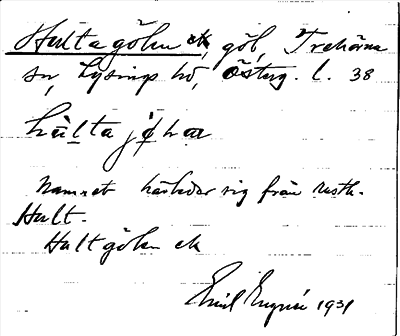 Hultagölen ek, göl, Trehörna
sn, Lysings hd, Österg. l. 38
hu̇lta jø̨̇ɴ
Namnet härleder sig från Mstk.
Hult.
Hultgölen ek
Emil Engnér 1931